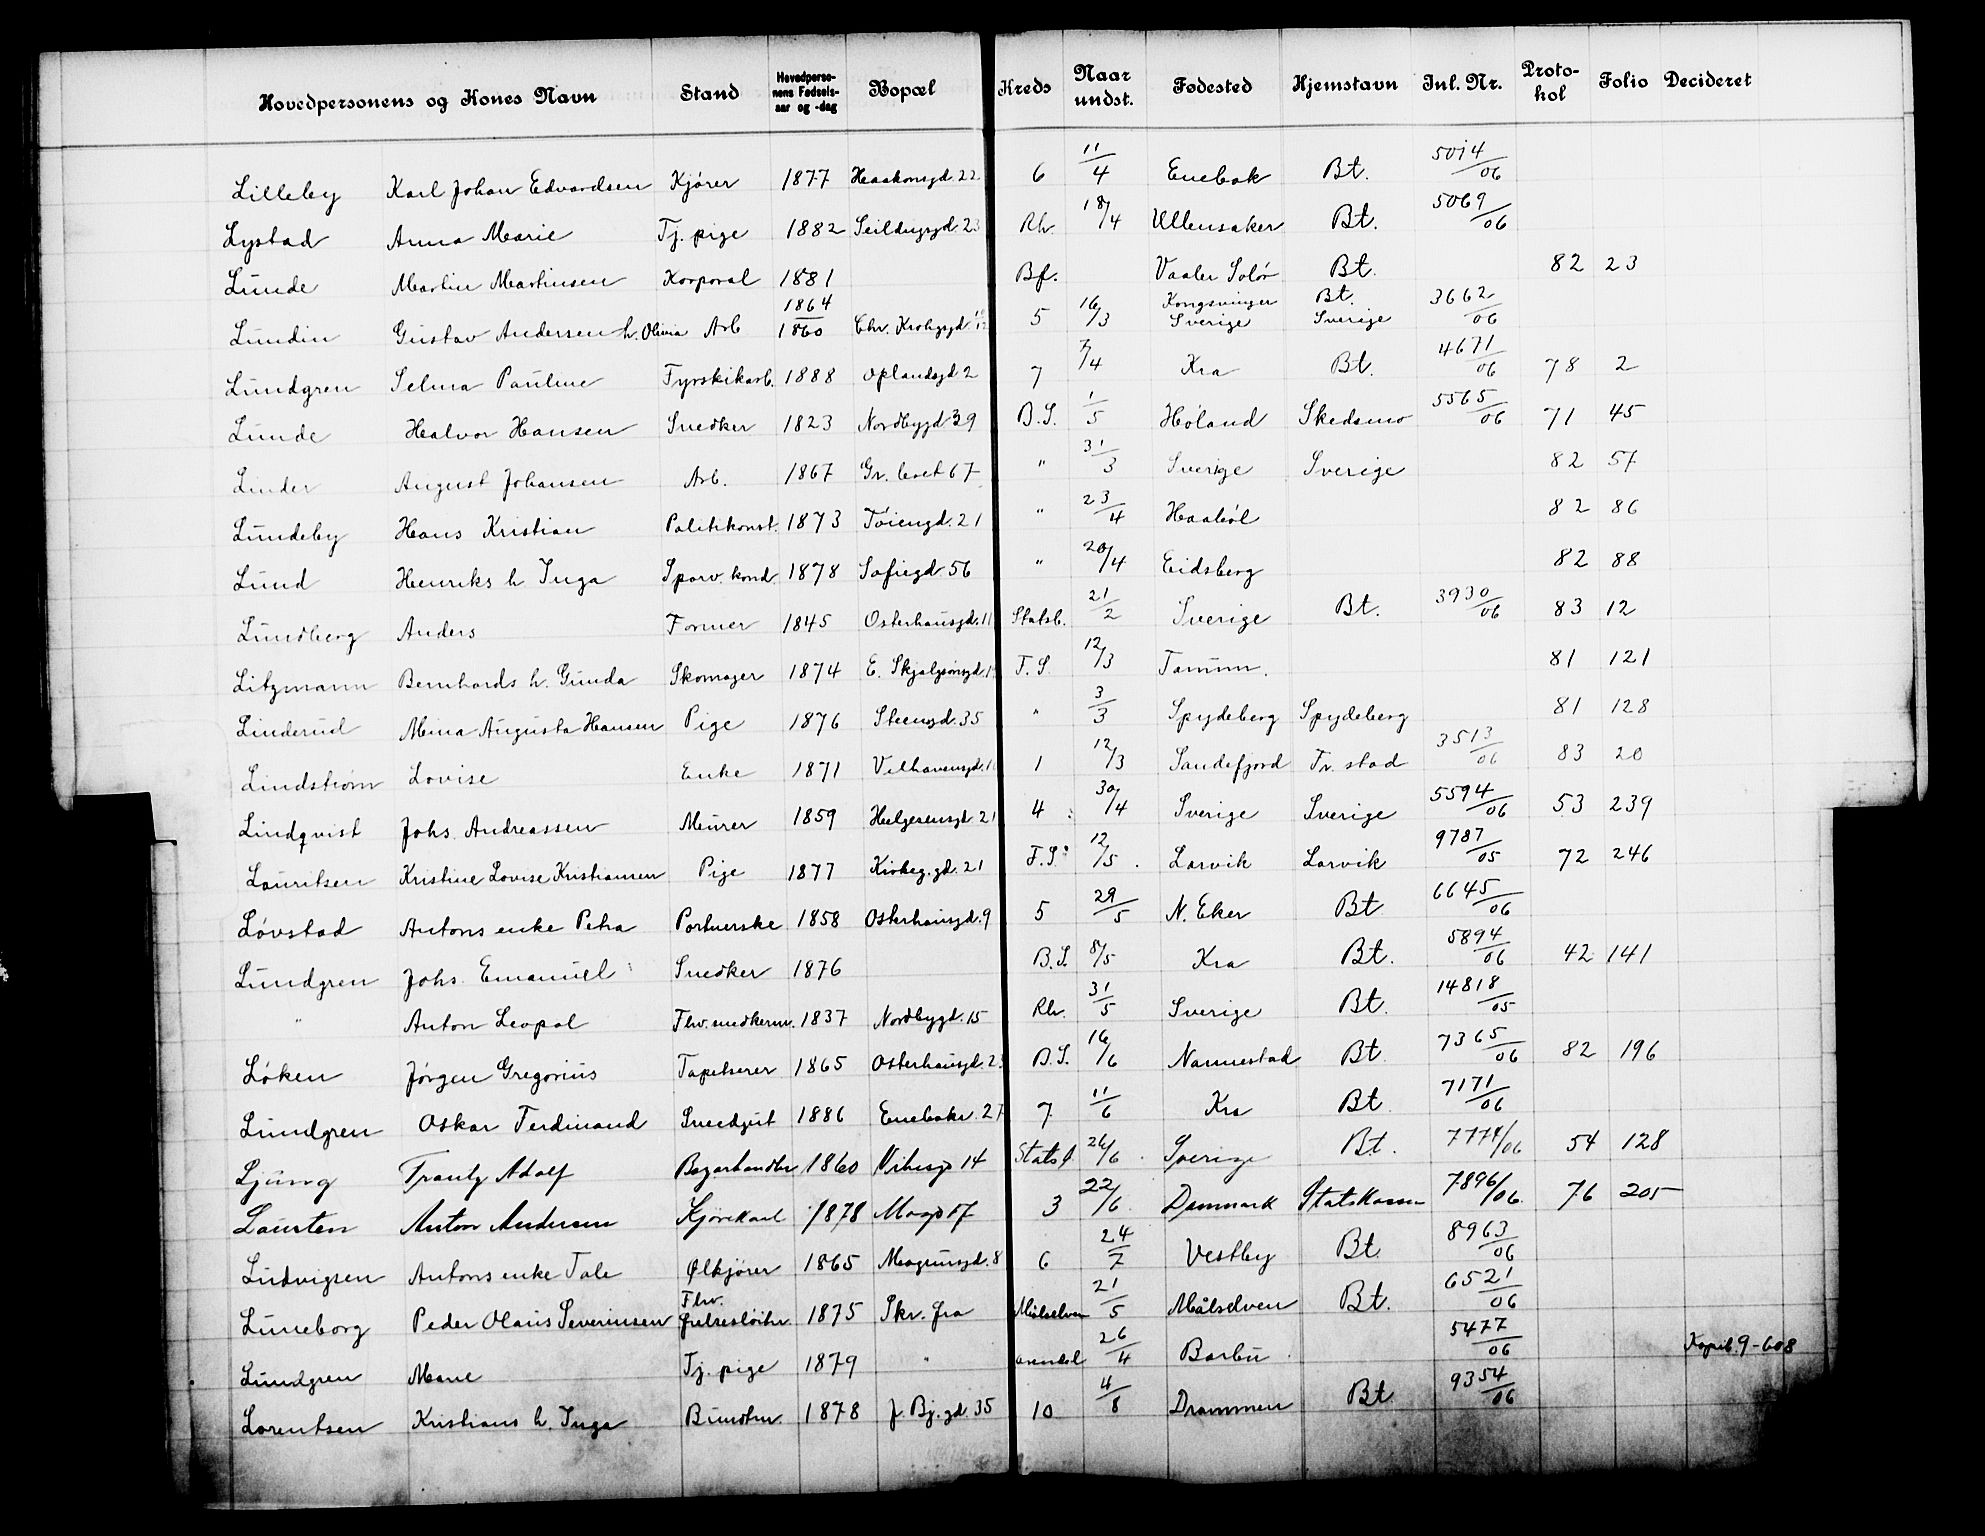 Hovedpersonens og Kones Navn Stand Hovedpersonens Fødselsaar og -dag Bopæl Kreds Naar undst. Fødested Hjemstavn Jnl. Nr. Protokol Folio Decideret
Lilleby Karl Johan Edvardsen Kjører 1877 Haakonsgd. 22 6 11/4 Enebak Bt. 5014/06
Lystad Anna Marie Tj. pige 1882 Seildugsgd. 23 Rh. 18/4 Ullensaker Bt. 5069/06
Lunde Martin Martinsen Korporal 1881 Bf. Vaaler Solør Bt. 82 23
Lundin Gustav Andersen h. Olivia Arb 1864/1860 Chr. Krohgsgd. 5 16/3 Kongsvinger Sverige Bt. Sverige 3662/06
Lundgren Selma Pauline Fyrstikarb. 1888 Oplandsgd 2 7 7/4 Kra Bt. 4671/06 78 2
Lunde Halvor Hansen Snedker 1823 Nordbygd 39 B.S. 1/5 Høland Skedsmo 5565/06 71 45
Linder August Johansen Arb. 1867 Gr. leret 67 " 31/3 Sverige Sverige 82 57
Lundeby Hans Kristian Politikonst. 1873 Tøiengd. 21 " 23/4 Haabøl 82 86
Lund Henriks h Inga Sporv. kond. 1878 Sofiegd 56 " 20/4 Eidsberg 82 88
Lundberg Anders Former 1845 Osterhausgd. 11 Statsb. 21/2 Sverige Bt. 3930/06 83 12
Litzmann Bernhards h. Gunda Skomager 1874 E. Skjalgsønsgd. F.S. 12/3 Tanum. 81 121
Linderud Mina Augusta Hansen Pige 1876 Steensgd. 35 " 3/3 Spydeberg Spydeberg 81 128
Lindstrøm Lovise Enke 1871 Velhavensgd. 1 12/3 Sandefjord Fr. stad 3513/06 83 20
Lindqvist Johs. Andreassen Murer 1859 Helgesensgd 21 4 30/4 Sverige Sverige 5594/06 53 239
Lauritsen Kristine Lovise Kristiansen Pige 1877 Kirkeg. gd. 21 F.S. 12/5 Larvik Larvik 9787/05 72 246
Løvstad Antons enke Petra Portnerske 1858 Osterhausgd. 9 5 29/5 N. Eker Bt 6645/06
Lundgren Johs. Emanuel Snedker 1876 B.S. 8/5 Kra Bt. 5894/06 42 141
" Anton Leopol Fhv. snedkerm. 1837 Nordbygd. 15 Rh. 31/5 Sverige Bt. 14818/05
Løken Jørgen Gregorius Tapetserer 1865 Osterhausgd. 2 B.S. 16/6 Nannestad Bt 7365/06 82 196
Lundgren Oskar Ferdinand Smedgut 1886 Enebakv. 27 7 11/6 Kra Bt 7171/06
Ljung Frantz Adolf Bazarhandler 1860 Vibesgt 14 Statsf. 26/6 Sverige Bt. 7774/06 54 128
Laursten Anton Andersen Kjørekarl 1878 Mosgt 17 3 22/6 Danmark Statskassen 7896/06. 76 205
Ludvigsen Antons enke Tale Ølkjører 1865 Magnusgd. 8 6 24/7 Vestby Bt 8963/06
Luneborg Peder Olaus Severinsen Fhv. frelsesløitn. 1875 Skr. fra Målselven 21/5 Målselven Bt. 6521/06
Lundgren Marie Tj. pige 1879 " Arendal 26/4 Barbu 5477/06 Kopib. 9-608
Lorentsen Kristians h. Inga Bundtm 1878 J. Bj. gd. 35 10 4/8 Drammen Bt. 9354/06